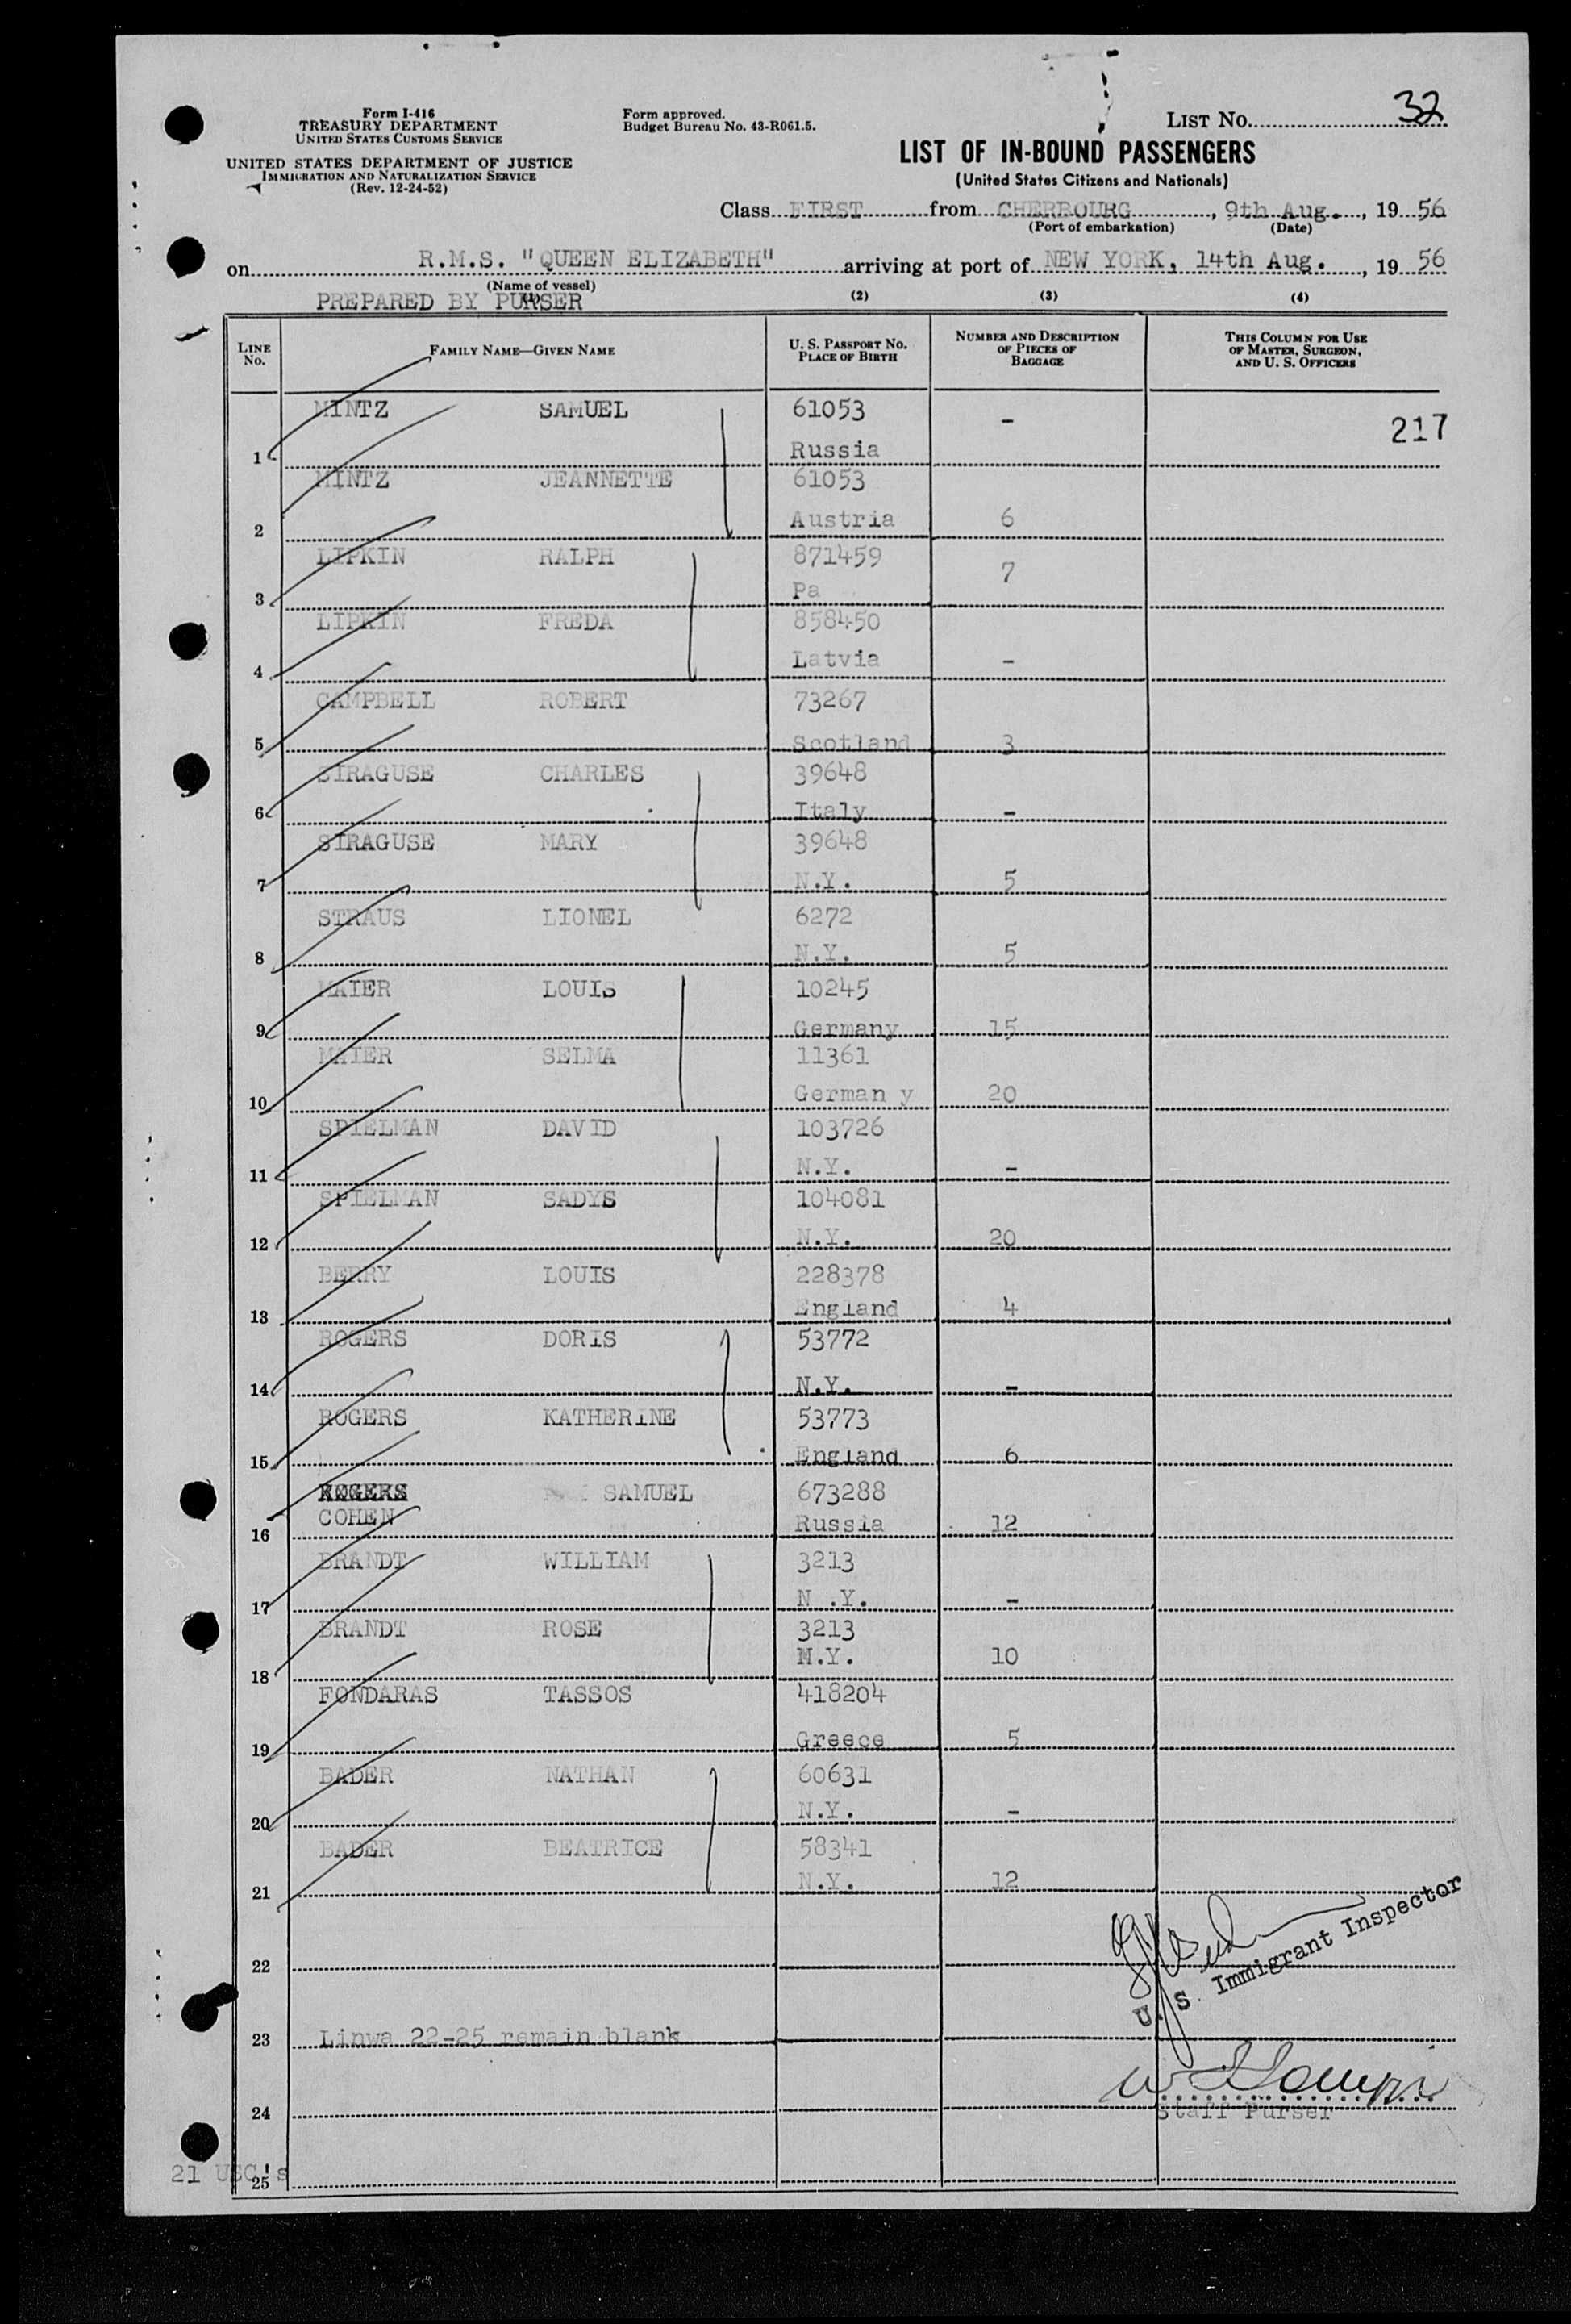 Form I-416
TREASURY DEPARTMENT
UNITED STATES CUSTOMS SERVICE
UNITED STATES DEPARTMENT OF JUSTICE
IMMIGRATION AND NATURALIZATION SERVICE
(Rev. 12-24-52)
Form approved.
Budget Bureau No. 43-R061.5.
LIST NO. 32
LIST OF IN-BOUND PASSENGERS
(United States Citizens and Nationals)
Class FIRST from CHERBOURG, 9th Aug., 19 56
(Port of embarkation) (Date)
on R.M.S. "QUEEN ELIZABETH" arriving at port of NEW YORK, 14th Aug., 19 56
(Name of vessel)
PREPARED BY PURSER
(1) (2) (3) (4)
LINE NO. FAMILY NAME—GIVEN NAME U. S. PASSPORT NO. PLACE OF BIRTH NUMBER AND DESCRIPTION OF PIECES OF BAGGAGE THIS COLUMN FOR USE OF MASTER, SURGEON, AND U. S. OFFICERS
MINTZ SAMUEL 61053 - 217
1 Russia
MINTZ JEANNETTE 61053
2 Austria 6
LIPKIN RALPH 871459 7
3 Pa
LIPKIN FREDA 858450
4 Latvia -
CAMPBELL ROBERT 73267
5 Scotland 3
SIRAGUSE CHARLES 39648
6 Italy -
SIRAGUSE MARY 39648
7 N.Y. 5
STRAUS LIONEL 6272
8 N.Y. 5
MAIER LOUIS 10245
9 Germany 15
MAIER SELMA 11361
10 German y 20
SPIELMAN DAVID 103726
11 N.Y. -
SPIELMAN SADYS 104081
12 N.Y. 20
BERRY LOUIS 228378
13 England 4
ROGERS DORIS 53772
14 N.Y. -
ROGERS KATHERINE 53773
15 England 6
ROGERS SAMUEL 673288
COHEN
16 Russia 12
BRANDT WILLIAM 3213
17 N .Y. -
BRANDT ROSE 3213
18 N.Y. 10
FONDARAS TASSOS 418204
19 Greece 5
BADER NATHAN 60631
20 N.Y. -
BADER BEATRICE 58341
21 N.Y. 12
22
U. S. Immigrant Inspector
23 Linwa 22-25 remain blank
24 Staff Purser
21 USC's
25